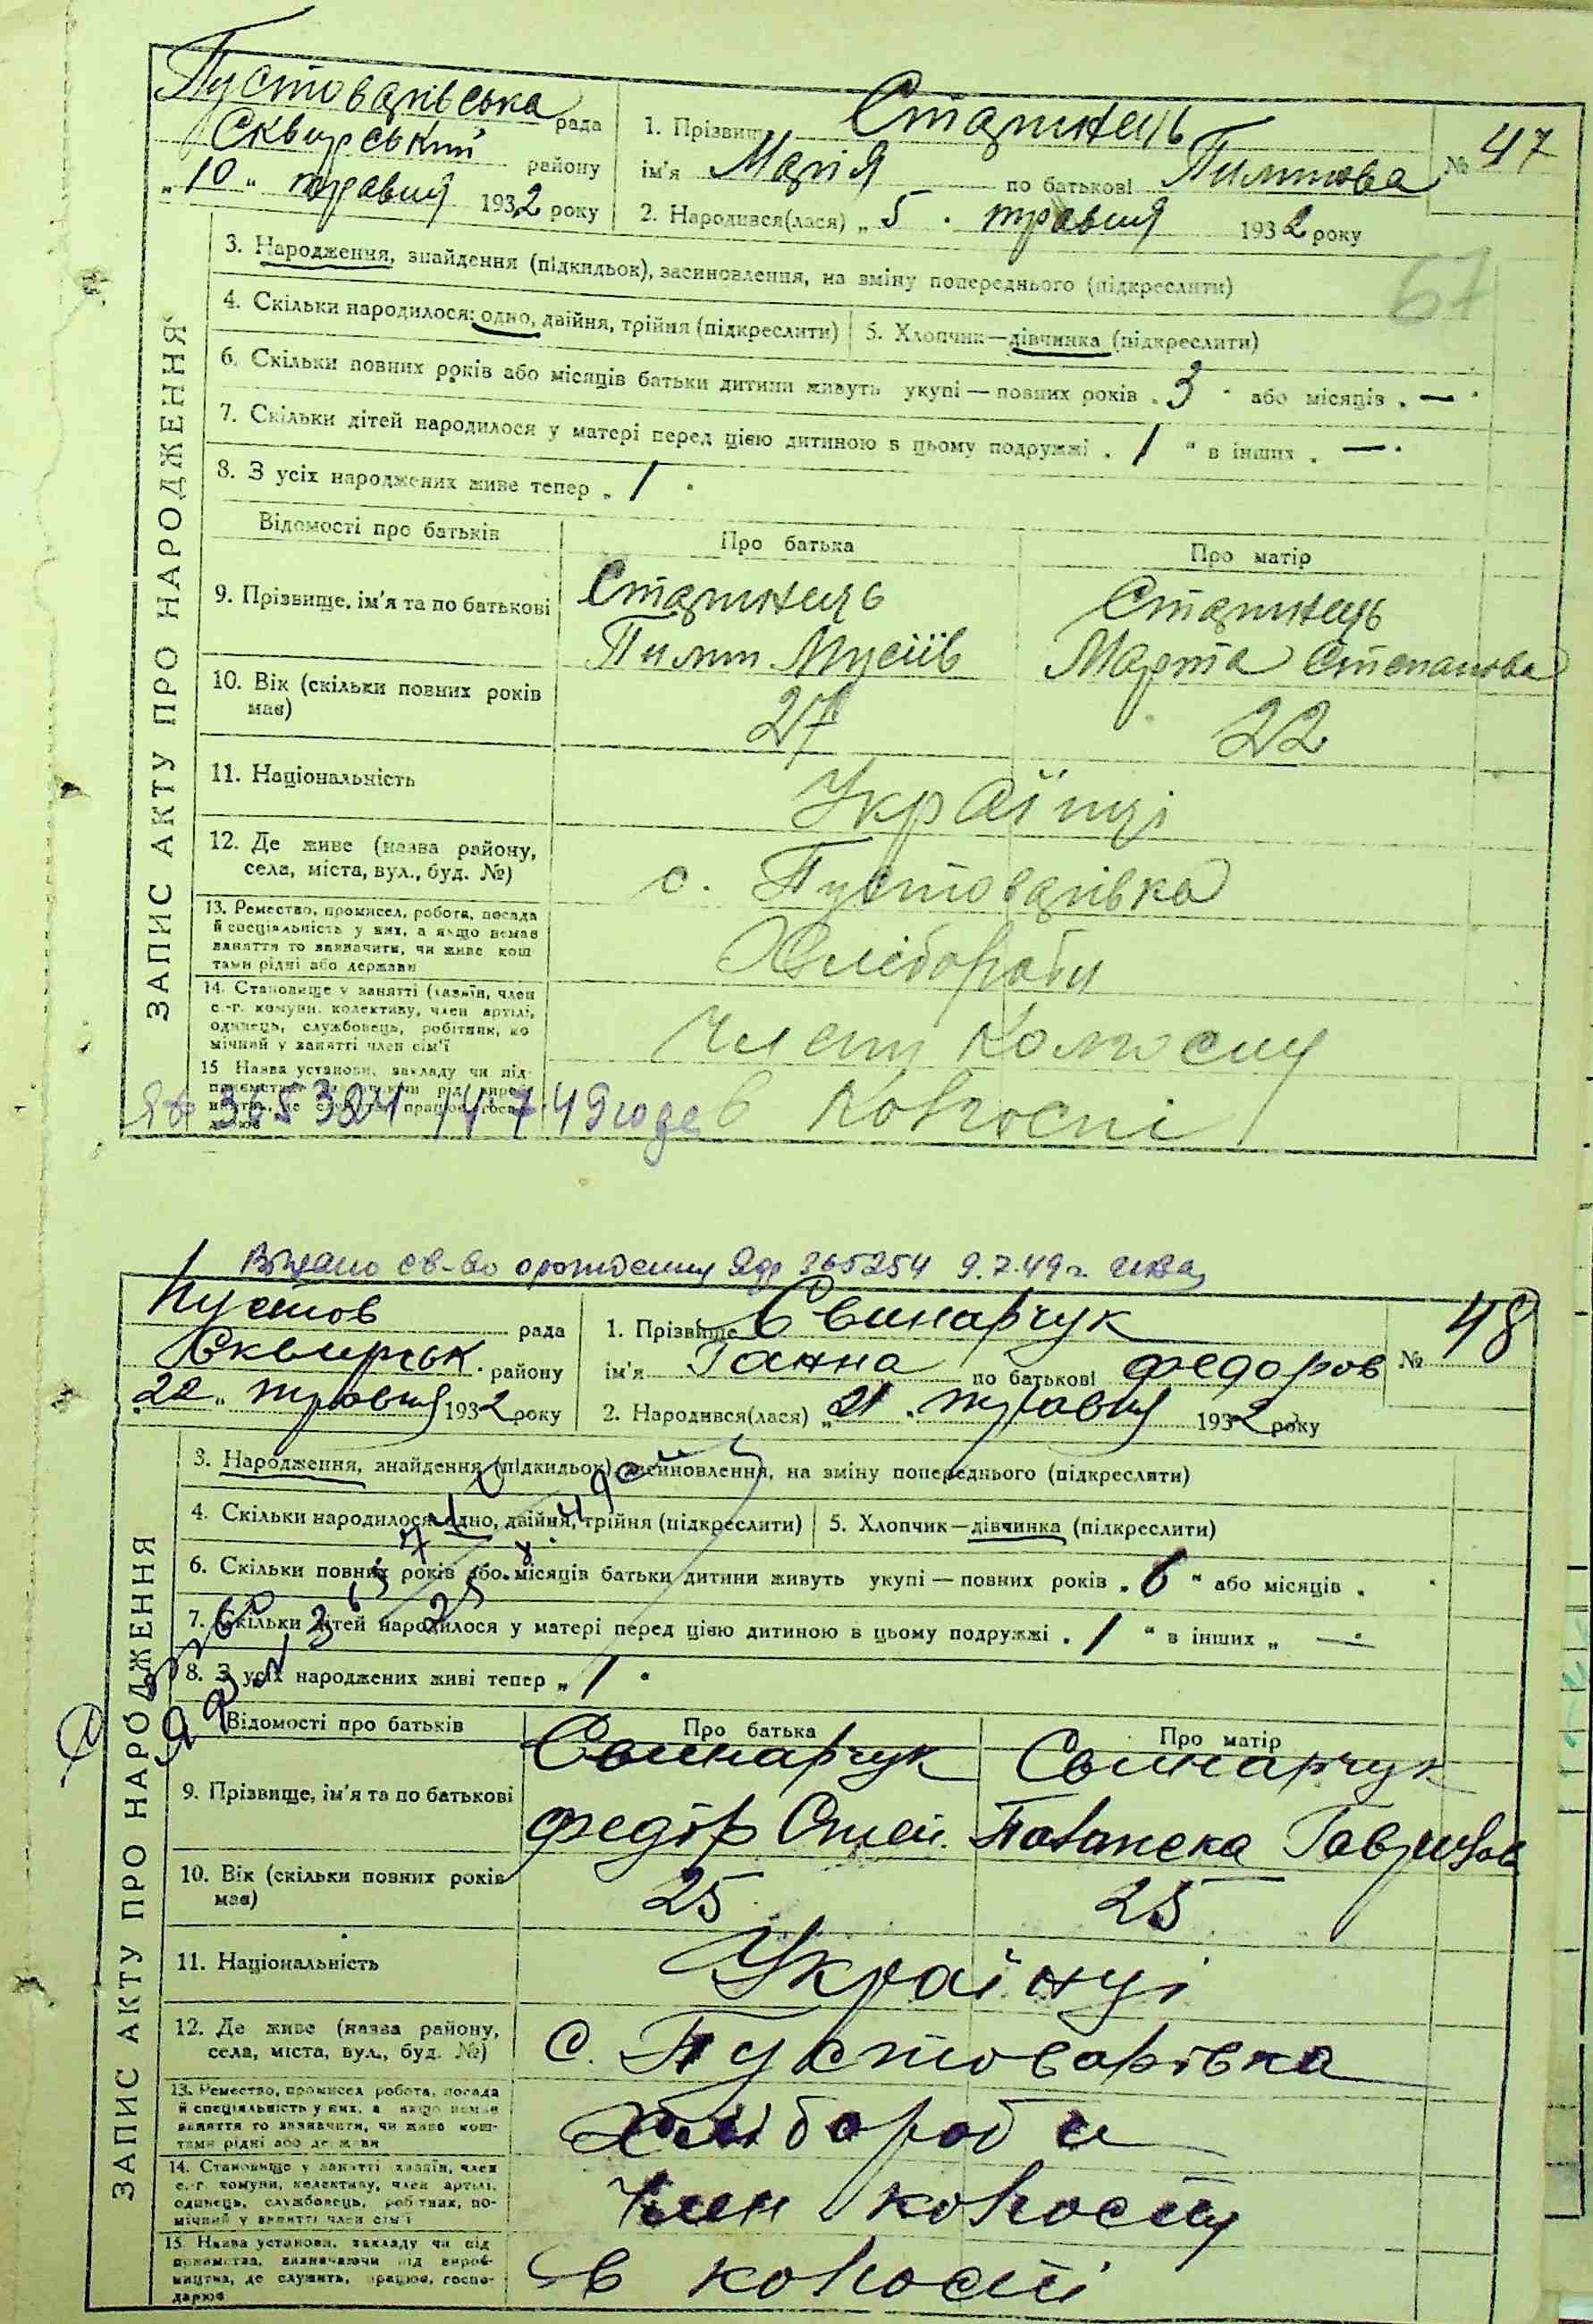 Пустоварівська рада
Сквирський району
„10" травня 1932 року
1. Прізвище Старинець
№ 47
ім'я Марія по батькові Пилипова
2. Народився(лася) „5" травня 1932 року
67
ЗАПИС АКТУ ПРО НАРОДЖЕННЯ
3. Народження, знайдення (підкидьок), засиновлення, на зміну попереднього (підкреслити)
4. Скільки народилося: одно, двійня, трійня (підкреслити) 5. Хлопчик—дівчинка (підкреслити)
6. Скільки повних років або місяців батьки дитини живуть укупі — повних років „3" або місяців „—"
7. Скільки дітей народилося у матері перед цією дитиною в цьому подружжі „1" в інших „—"
8. З усіх народжених живе тепер „1"
Відомості про батьків Про батька Про матір
9. Прізвище, ім'я та по батькові
Старинець Старинець
Пилип Мусіїв Марта Степанова
10. Вік (скільки повних років має) 27 22
11. Національність Українці
12. Де живе (назва району, села, міста, вул., буд. №) с. Пустоварівка
13. Ремество, промисел, робота, посада й спеціальність у них, а якщо немає заняття то зазначити, чи живе коштами рідні або держави
Хлібороби
14. Становище у занятті (хазяїн, член с.-г. комуни, колективу, член артілі, одинець, службовець, робітник, помічний у занятті член сім'ї
Члени колгоспу
15 Назва установи, закладу чи підприємства
в колгоспі
365384 14 7. 49 года
Выдано св-во о рождении 365254 9.7.49 г.
Пустов рада
Сквирськ. району
22" травня 1932 року
1. Прізвище Свинарчук
№ 48
ім'я Ганна по батькові Федоров
2. Народився(лася) „21" травня 1932 року
ЗАПИС АКТУ ПРО НАРОДЖЕННЯ
3. Народження, знайдення (підкидьок), засиновлення, на зміну попереднього (підкреслити)
4. Скільки народилося: одно, двійня, трійня (підкреслити) 5. Хлопчик—дівчинка (підкреслити)
6. Скільки повних років або місяців батьки дитини живуть укупі — повних років „6" або місяців „ "
7. Скільки дітей народилося у матері перед цією дитиною в цьому подружжі „1" в інших „—"
8. З усіх народжених живі тепер „1"
Відомості про батьків Про батька Про матір
9. Прізвище, ім'я та по батькові
Свинарчук Свинарчук
Федір Гаврилов
10. Вік (скільки повних років має) 25 25
11. Національність Українці
12. Де живе (назва району, села, міста, вул., буд. №) с. Пустоварівка
13. Ремество, промисел робота, посада й спеціальність у них, а якщо немає заняття то зазначити, чи живе коштами рідні або держави
Хлібороби
14. Становище у занятті хазяїн, член с.-г. комуни, колективу, член артілі, одинець, службовець, робітник, помічний у занятті член сім'ї
Член колгоспу
15. Назва установи, закладу чи підприємства, зазначаючи рід виробництва, де служить, працює, господарює
в колгоспі